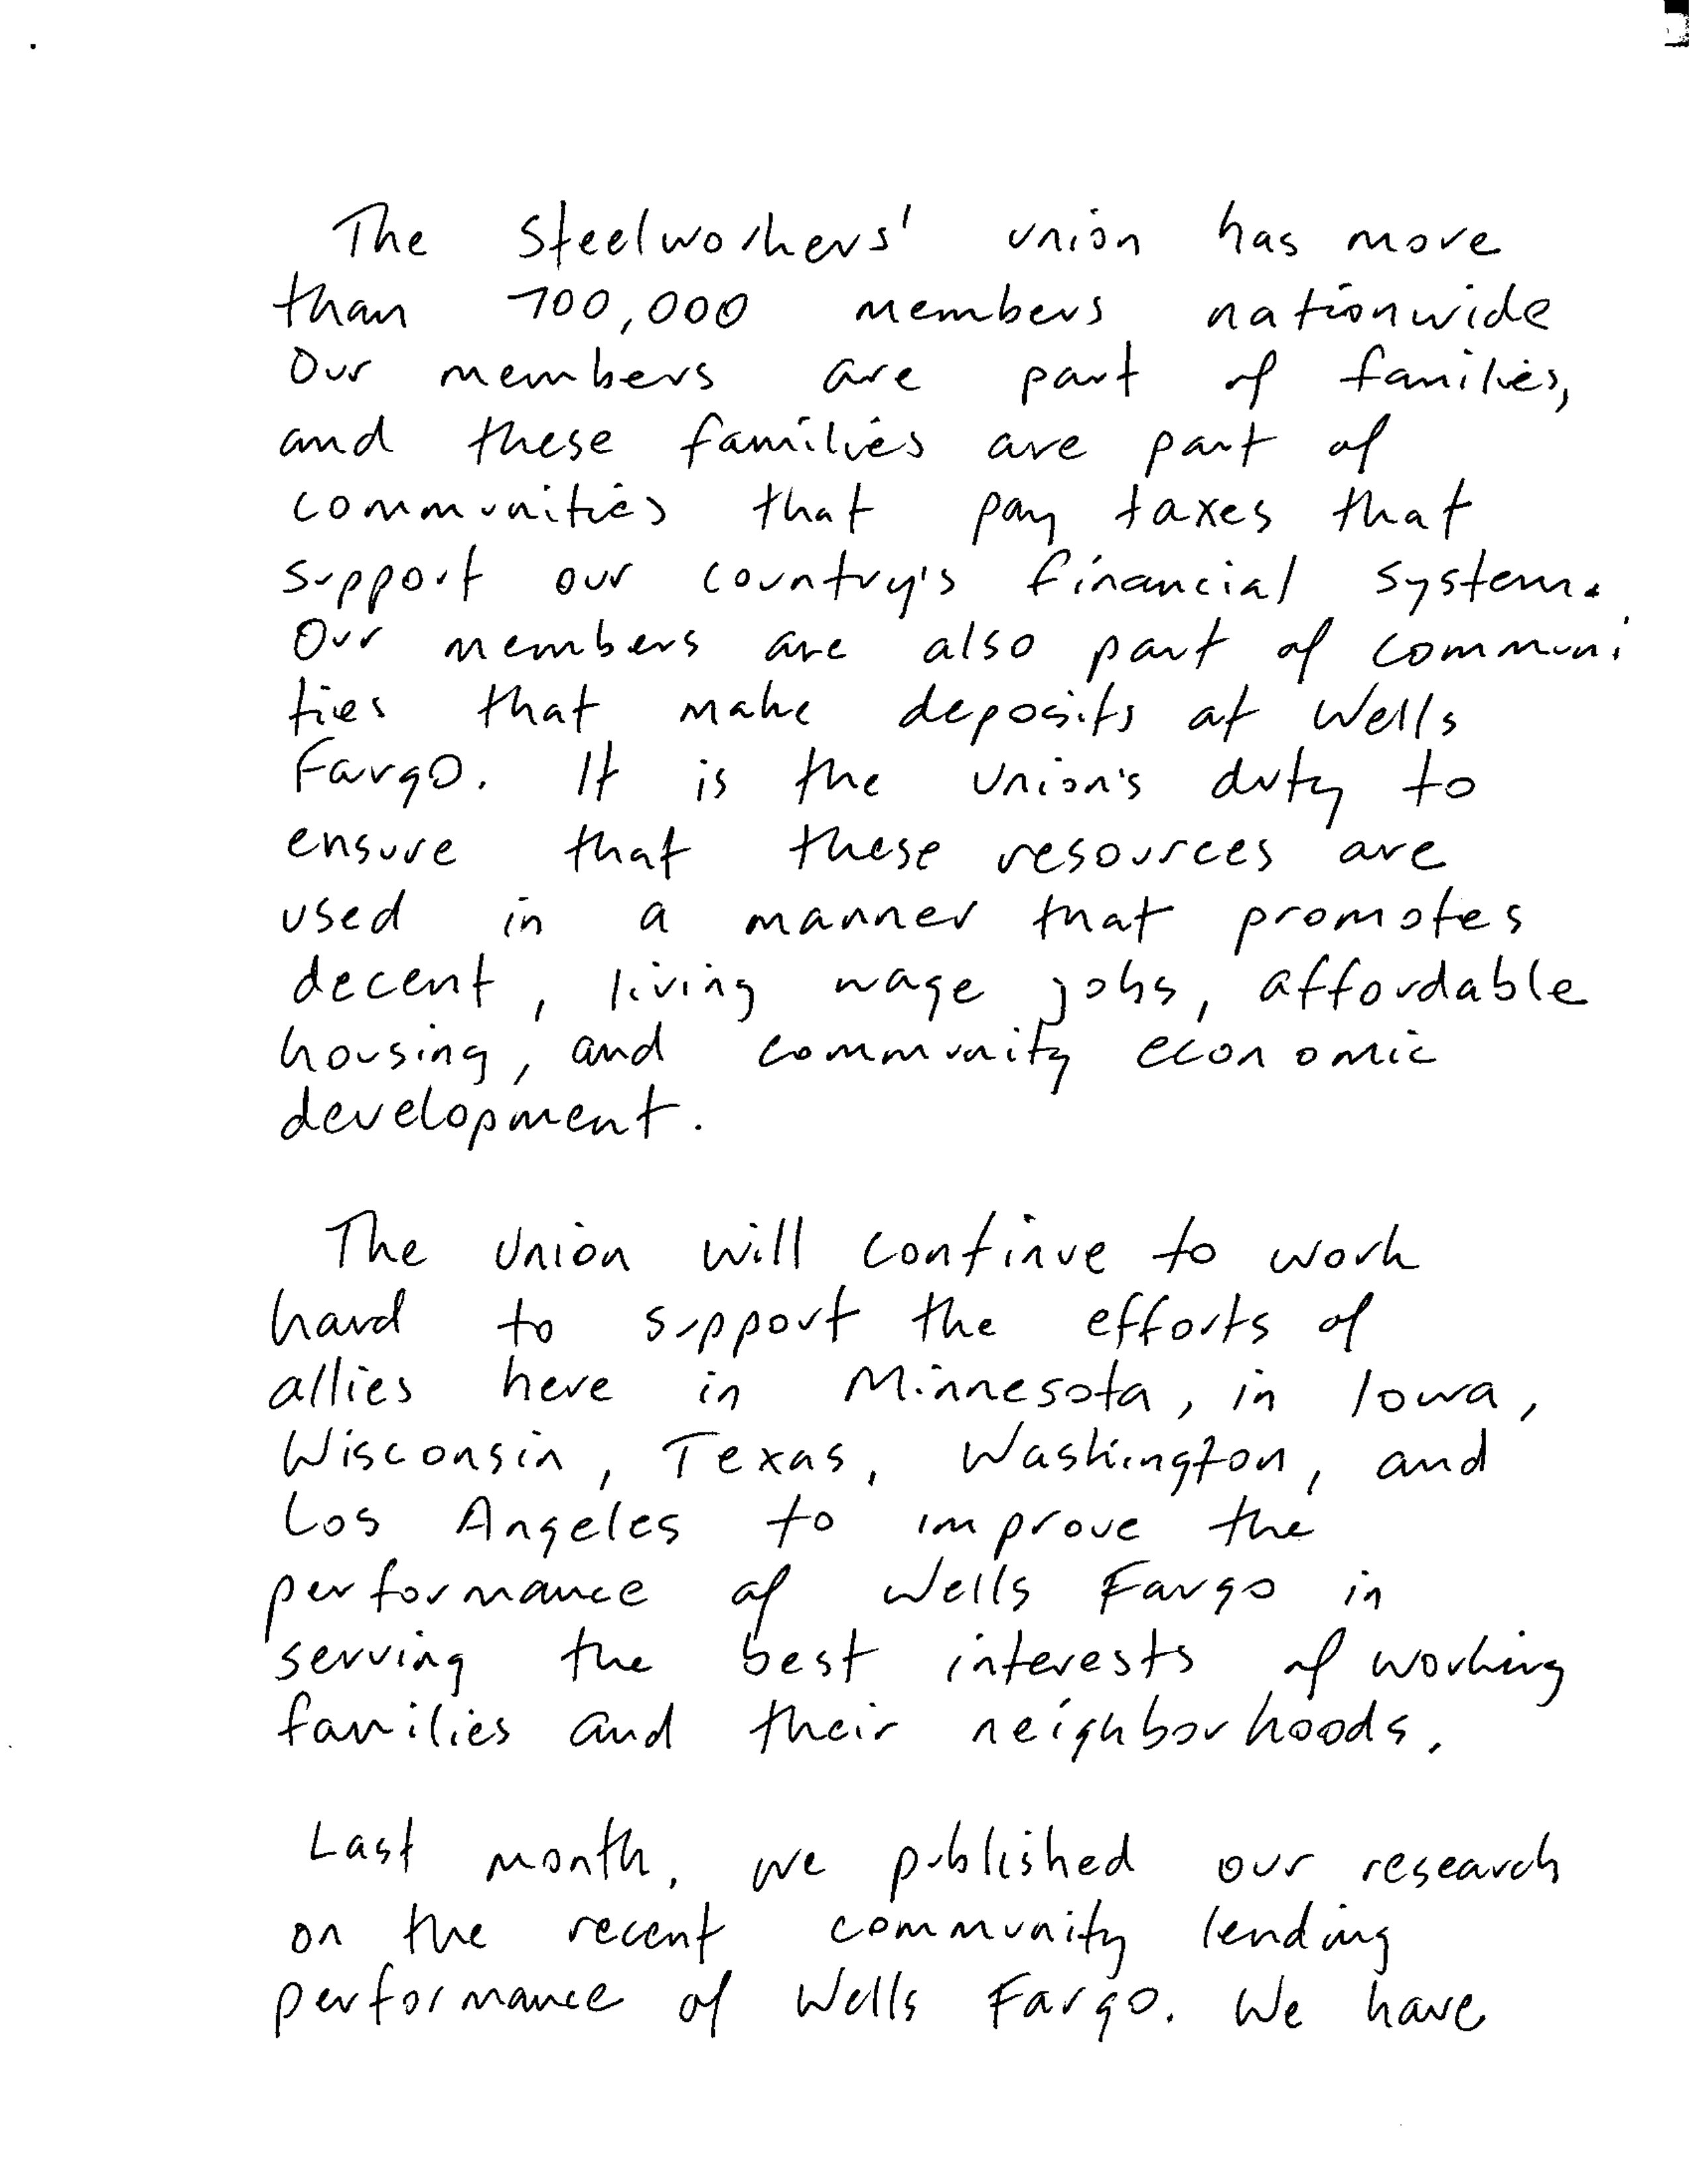 The Steelworkers' union has more
than 700,000 members nationwide
Our members are part of families,
and these families are part of
communities that pay taxes that
support our country's financial system.
Our members are also part of communi
ties that make deposits at Wells
Fargo. It is the union's duty to
ensure that these resources are
used in a manner that promotes
decent, living wage jobs, affordable
housing, and community economic
development.
The union will continue to work
hard to support the efforts of
allies here in Minnesota, in Iowa,
Wisconsin, Texas, Washington, and
Los Angeles to improve the
performance of Wells Fargo in
serving the best interests of working
families and their neighborhoods.
Last month, we published our research
on the recent community lending
performance of Wells Fargo. We have